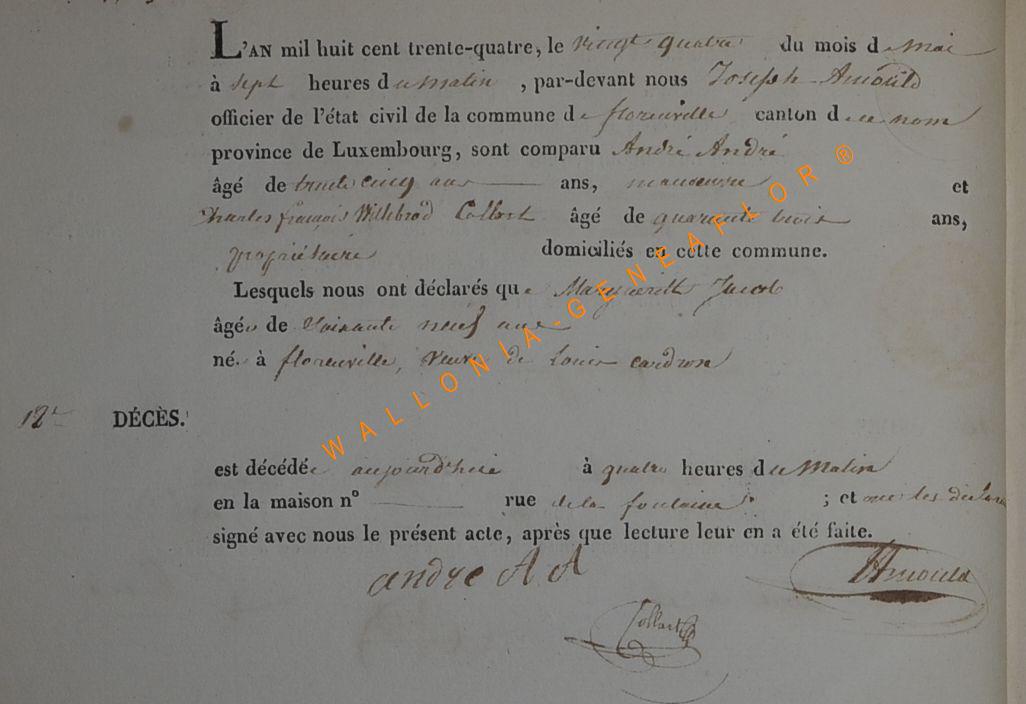 L'AN mil huit cent trente-quatre, le vingt quatre du mois de Mai
à sept heures du Matin, par-devant nous Joseph Arnould
officier de l'état civil de la commune de florenville canton de ce nom
province de Luxembourg, sont comparu André André
âgé de trente cinq ans ans, manoeuvre et
Charles françois Willebrod Collart âgé de quarante trois ans,
propriétaire domiciliés en cette commune.
Lesquels nous ont déclarés que Marguerith Jacob
âgée de Soixante neuf ans
né à florenville, veuve de Louis cardron
12e DÉCÈS.
est décédée aujourd'hui à quatre heures du Matin
en la maison n° rue de la fontaine ; et ont les déclarans
signé avec nous le présent acte, après que lecture leur en a été faite.
andre A A HArnould
Collart
WALLONIA-GENEAFLOR ®